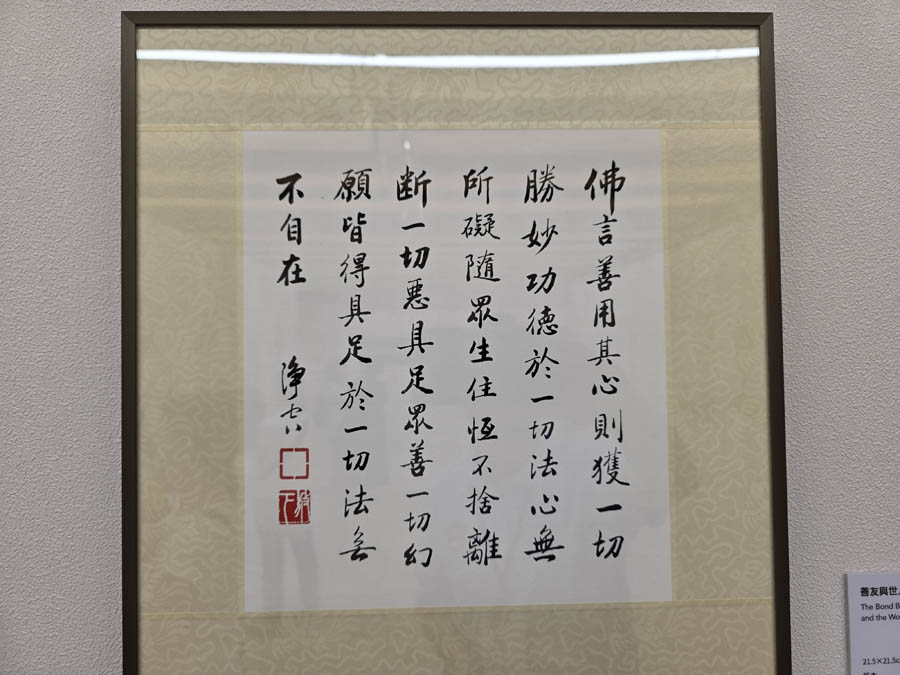 佛言善用其心則獲一切
勝妙功德於一切法心無
所礙隨眾生住恆不捨離
断一切惡具足眾善一切行
願皆得具足於一切法無
不自在
淨空
善友與世
The Bond
and the
21.5×21.5c